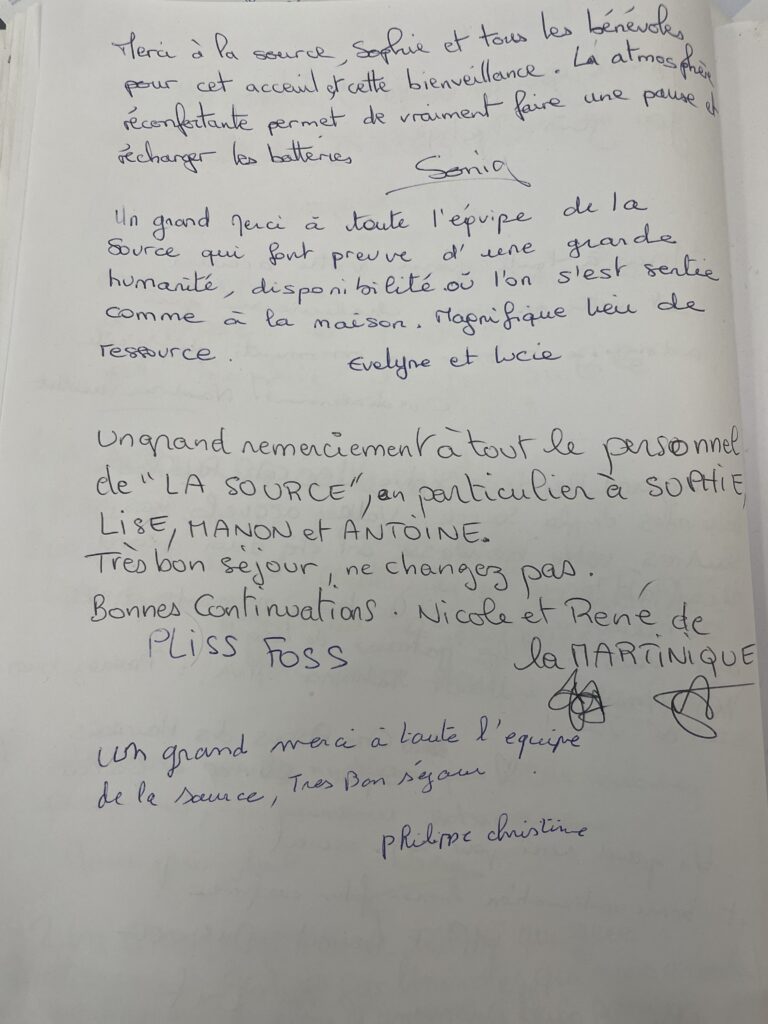 Merci à la source, Sophie et tous les bénévoles
pour cet acceuil et cette bienveillance. La atmosphère
réconfortante permet de vraiment faire une pause et
récharger les batteries
Sonia
Un grand merci à toute l'équipe de la
Source qui font preuve d'une grande
humanité, disponibilité où l'on s'est sentie
comme à la maison. Magnifique lieu de
ressource.
Evelyne et Lucie
Un grand remerciement à tout le personnel
de "LA SOURCE", en particulier à SOPHIE,
LISE, MANON et ANTOINE.
Très bon séjour, ne changez pas.
Bonnes Continuations. Nicole et René de
PLISS FOSS la MARTINIQUE
Un grand merci à toute l'equipe
de la source, Tres Bon séjour.
philippe christine